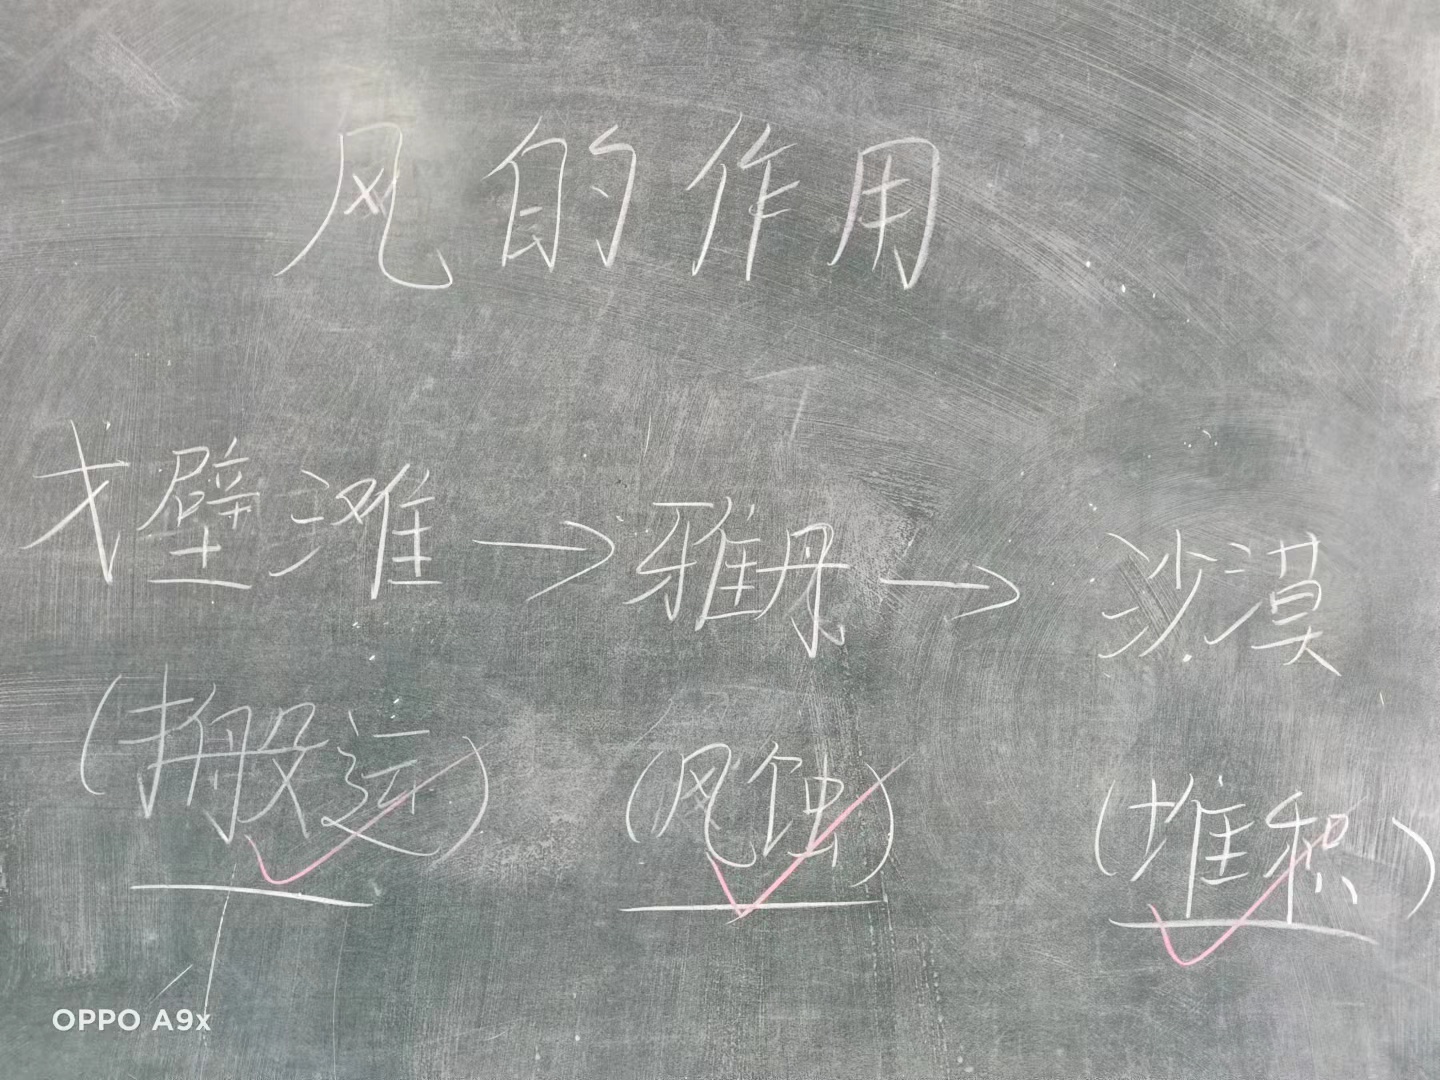 风的作用
戈壁滩→雅丹→沙漠
(搬运) (风蚀) (堆积)
OPPO A9x